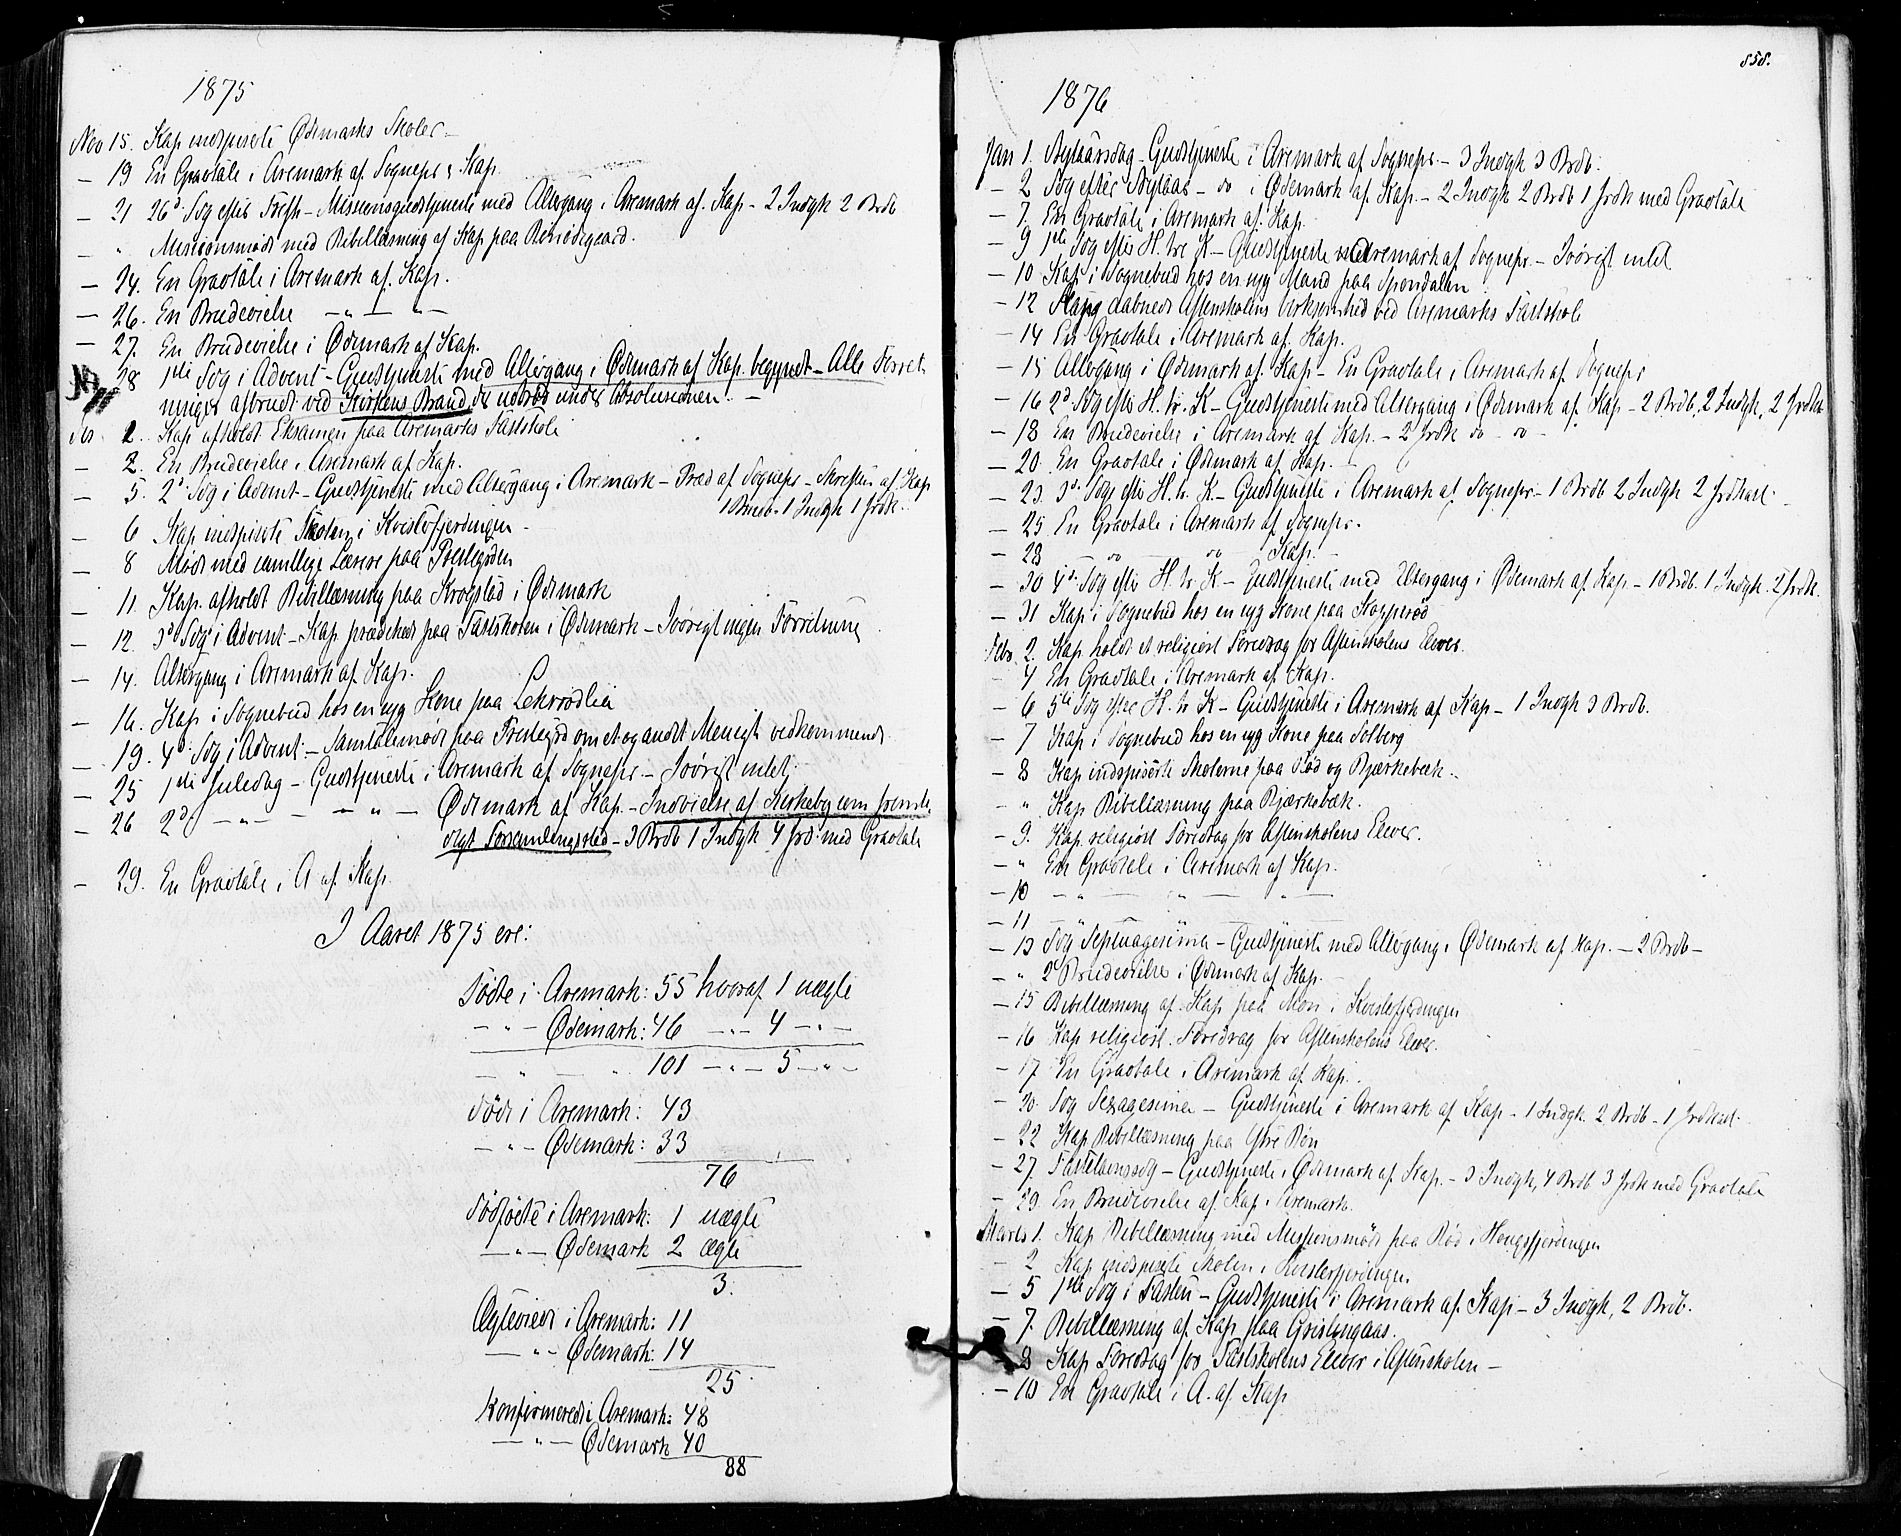 1875
Nov 15. Kap inspiserte Ødemarks Skoler –
– 19 En Gravtale i Aremark af Sognepr & Kap
– 21 26d. Søg efter Trefh – Missionsgudstjeneste med Altergang i Aremark af. Kap – 2 Indgk 2 Brdb
– " Missionsmöde med Bibellæsning af Kap paa
– 24. En Gravtale i Aremark af. Kap.
– 26. En Brudevielse – " – " –
– 27. En Brudevielse i Ødemark af Kap.
28 1ste Søg i Advent – Gudstjeneste med Altergang i Ødemark af Kap. begyndt – Alle Forret
ninger afbrudt ved Kirkens Brand der udbrød under Absolutionen. –
1. Kap afholdt Eksamen paa Aremarks Fastskole
– 2. En Brudevielse i Aremark af Kap.
– 5. 2d Søg i Advent – Gudstjeneste med Altergang i Aremark – Præd af Sognepr – Skriften af Kap
1 Brudv. 1 Indgk 1 Jrdk.
– 6 Kap inspiserte Skolen i Kirkefjerdingen –
– 8 Möde med samtlige Lærere paa Prestegården
– 11. Kap. afholdt Bibellæsning paa Krogstad i Ødemark
– 12. 3d Søg i Advent – Kap prædikede paa Fastskolen i Ødemark – Iövrigt ingen Forretning
– 14. Altergang i Aremark af Kap.
– 16. Kap i Sognebud hos en syg Kone paa
– 19. 4d Søg i Advent – Samtalemöde paa Prestegård om et og andet Menigh vedkommende
– 25 1ste Juledag – Gudstjeneste i Aremark af Sognepr – Iövrigt intet
– 26 2d – " – – " – Ødemark af Kap. – Indvielse af Kirkeby som foreløbi
digt Forsamlingssted – 3 Brdb 1 Indgk 4 Jrd med Gravtale
– 29. En Gravtale i A af. Kap
I Aaret 1875 ere:
Födte i Aremark: 55 hvoraf 1 uægte
– " – Ødemark: 46 – " – 4 – " –
– " – " 101 – " – 5 – " –
Döde i Aremark: 43
– " – Ødemark: 33
76
Dödfödte i Aremark: 1 uægte
– " – Ødemark 2 ægte
3.
Ægteviede i Aremark: 11
– " – Ødemark: 14
25
Konfirmerede i Aremark: 48
– " – Ødemark 40
88
858.
1876
Jan 1. Nytaarsdag – Gudstjeneste i Aremark af Sognepr – 3 Indgk 3 Brdb.
– 2 Søg efter Nytaar – do i Ødemark af Kap. – 2 Indgk 2 Brdb 1 Jrdk med Gravtale
– 7. En Gravtale i Aremark af. Kap.
– 9 1ste Søg efter H. tre K – Gudstjeneste i Aremark af Sognepr. – Iövrigt intet
– 10 Kap i Sognebud hos en syg Mand paa
– 12 Kap aabnede Aftenskolens Virksomhed ved Aremarks Fastskole
– 14 En Gravtale i Aremark af. Kap.
– 15 Altergang i Ødemark af. Kap – En Gravtale i Aremark af. Sognepr
– 16 2d Søg efter H. tr. K – Gudstjeneste med Altergang i Ødemark af. Kap – 2 Brdb, 2 Indgk, 2 Jrdk
– 18 En Brudevielse i Aremark af Kap. – 2 Jrdk do – do –
– 20. En Gravtale i Ødemark af Kap.
– 23. 3d. Søg efter H. tr. K – Gudstjeneste i Aremark af Sognepr – 1 Brdb 2 Indgk 2 Jrdkast –
– 25 En Gravtale i Aremark af Sognepr.
– 28 – do – do – Kap. –
– 30 4d. Søg efter H. tr K – Gudstjeneste med Altergang i Ødemark af Kap – 1 Brdb. 1 Indgk. 2 Jrdk.
– 31 Kap i Sognebud hos en syg Kone paa Kopperød
Febr. 2. Kap holdt et religiöst Foredrag for Aftenskolens Elever.
– 4 En Gravtale i Aremark af Kap.
– 6 5te Søg efter H. tr K – Gudstjeneste i Aremark af Kap – 1 Indgk 3 Brdb.
– 7 Kap i Sognebud hos en syg Kone paa Solberg
– 8 Kap inspiserte Skolerne paa Rød og Bjærkebæk.
– " Kap Bibellæsning paa Bjærkebæk.
– 9. Kap religiöst Foredrag for Aftenskolens Elever.
– " En Gravtale i Aremark af Kap.
– 10 – " – " – " –
– 11 – " – " – " –
– 13 Søg Septuagesima – Gudstjeneste med Altergang i Ødemark af Kap. – 2 Brdb –
– " 2 Brudevielse i Ødemark af Kap.
– 15 Bibellæsning af. Kap paa Mon i Kirkefjerdingen
– 16 Kap religiöst Foredrag for Aftenskolens Elever.
– 17. En Gravtale i Aremark af Kap.
– 20. Søg Sexagesima – Gudstjeneste i Aremark af Kap – 1 Indgk. 2 Brdb – 1 Jrdkast
– 22 Kap Bibellæsning paa Ytre Bön
– 27. Fastelavnssøg – Gudstjeneste i Ødemark af Kap. – 3 Indgk, 4 Brdb 3 Jrdk med Gravtale
– 29. En Brudevielse af Kap i Aremark.
Marts 1. Kap Bibellæsning med Missionsmöde paa Rød i
– 2 Kap inspiserte Skolen i Kirkefjerdingen
– 5 1ste Søg i Fasten – Gudstjeneste i Aremark af. Kap – 3 Indgk, 2 Brdb.
– 7. Bibellæsning af. Kap paa
– 8 Kap Foredrag for Fastskolens Elever i Aftenskolen –
– 10 En Gravtale i A. af. Kap